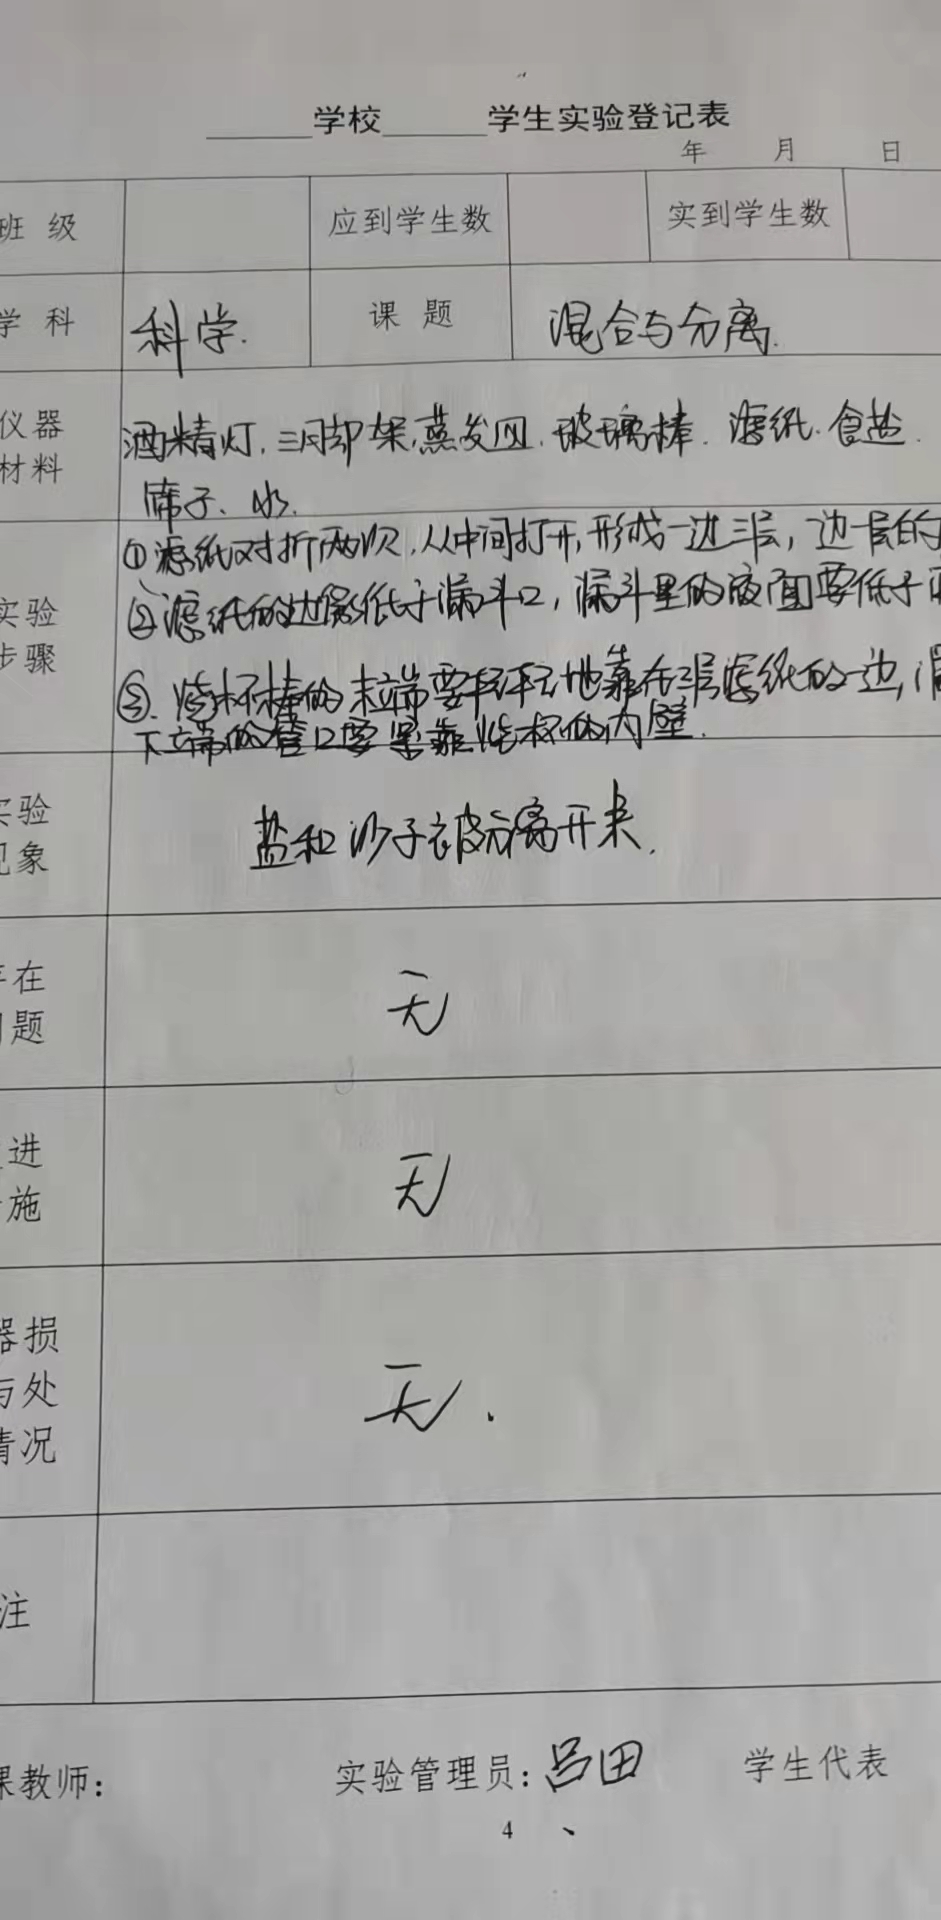 ______学校______学生实验登记表
年 月 日
班 级 应到学生数 实到学生数
学 科 科学. 课 题 混合与分离.
仪器
材料
酒精灯.三月却架.蒸发皿.玻璃棒.滤纸.食盐.
筛子、水.
实验
步骤
①滤纸对折两次,从中间打开,形成一边三层,边一层的
②滤纸的边缘低于漏斗口,漏斗里的液面要低于
③.烧杯棒的末端要轻轻地靠在三层滤纸的一边,
下端的管口要紧靠烧杯的内壁.
实验
现象
盐和沙子被分离开来.
存在
问题
无
进
施
无
器损
与处
情况
无.
注
课教师: 实验管理员:吕田 学生代表
4